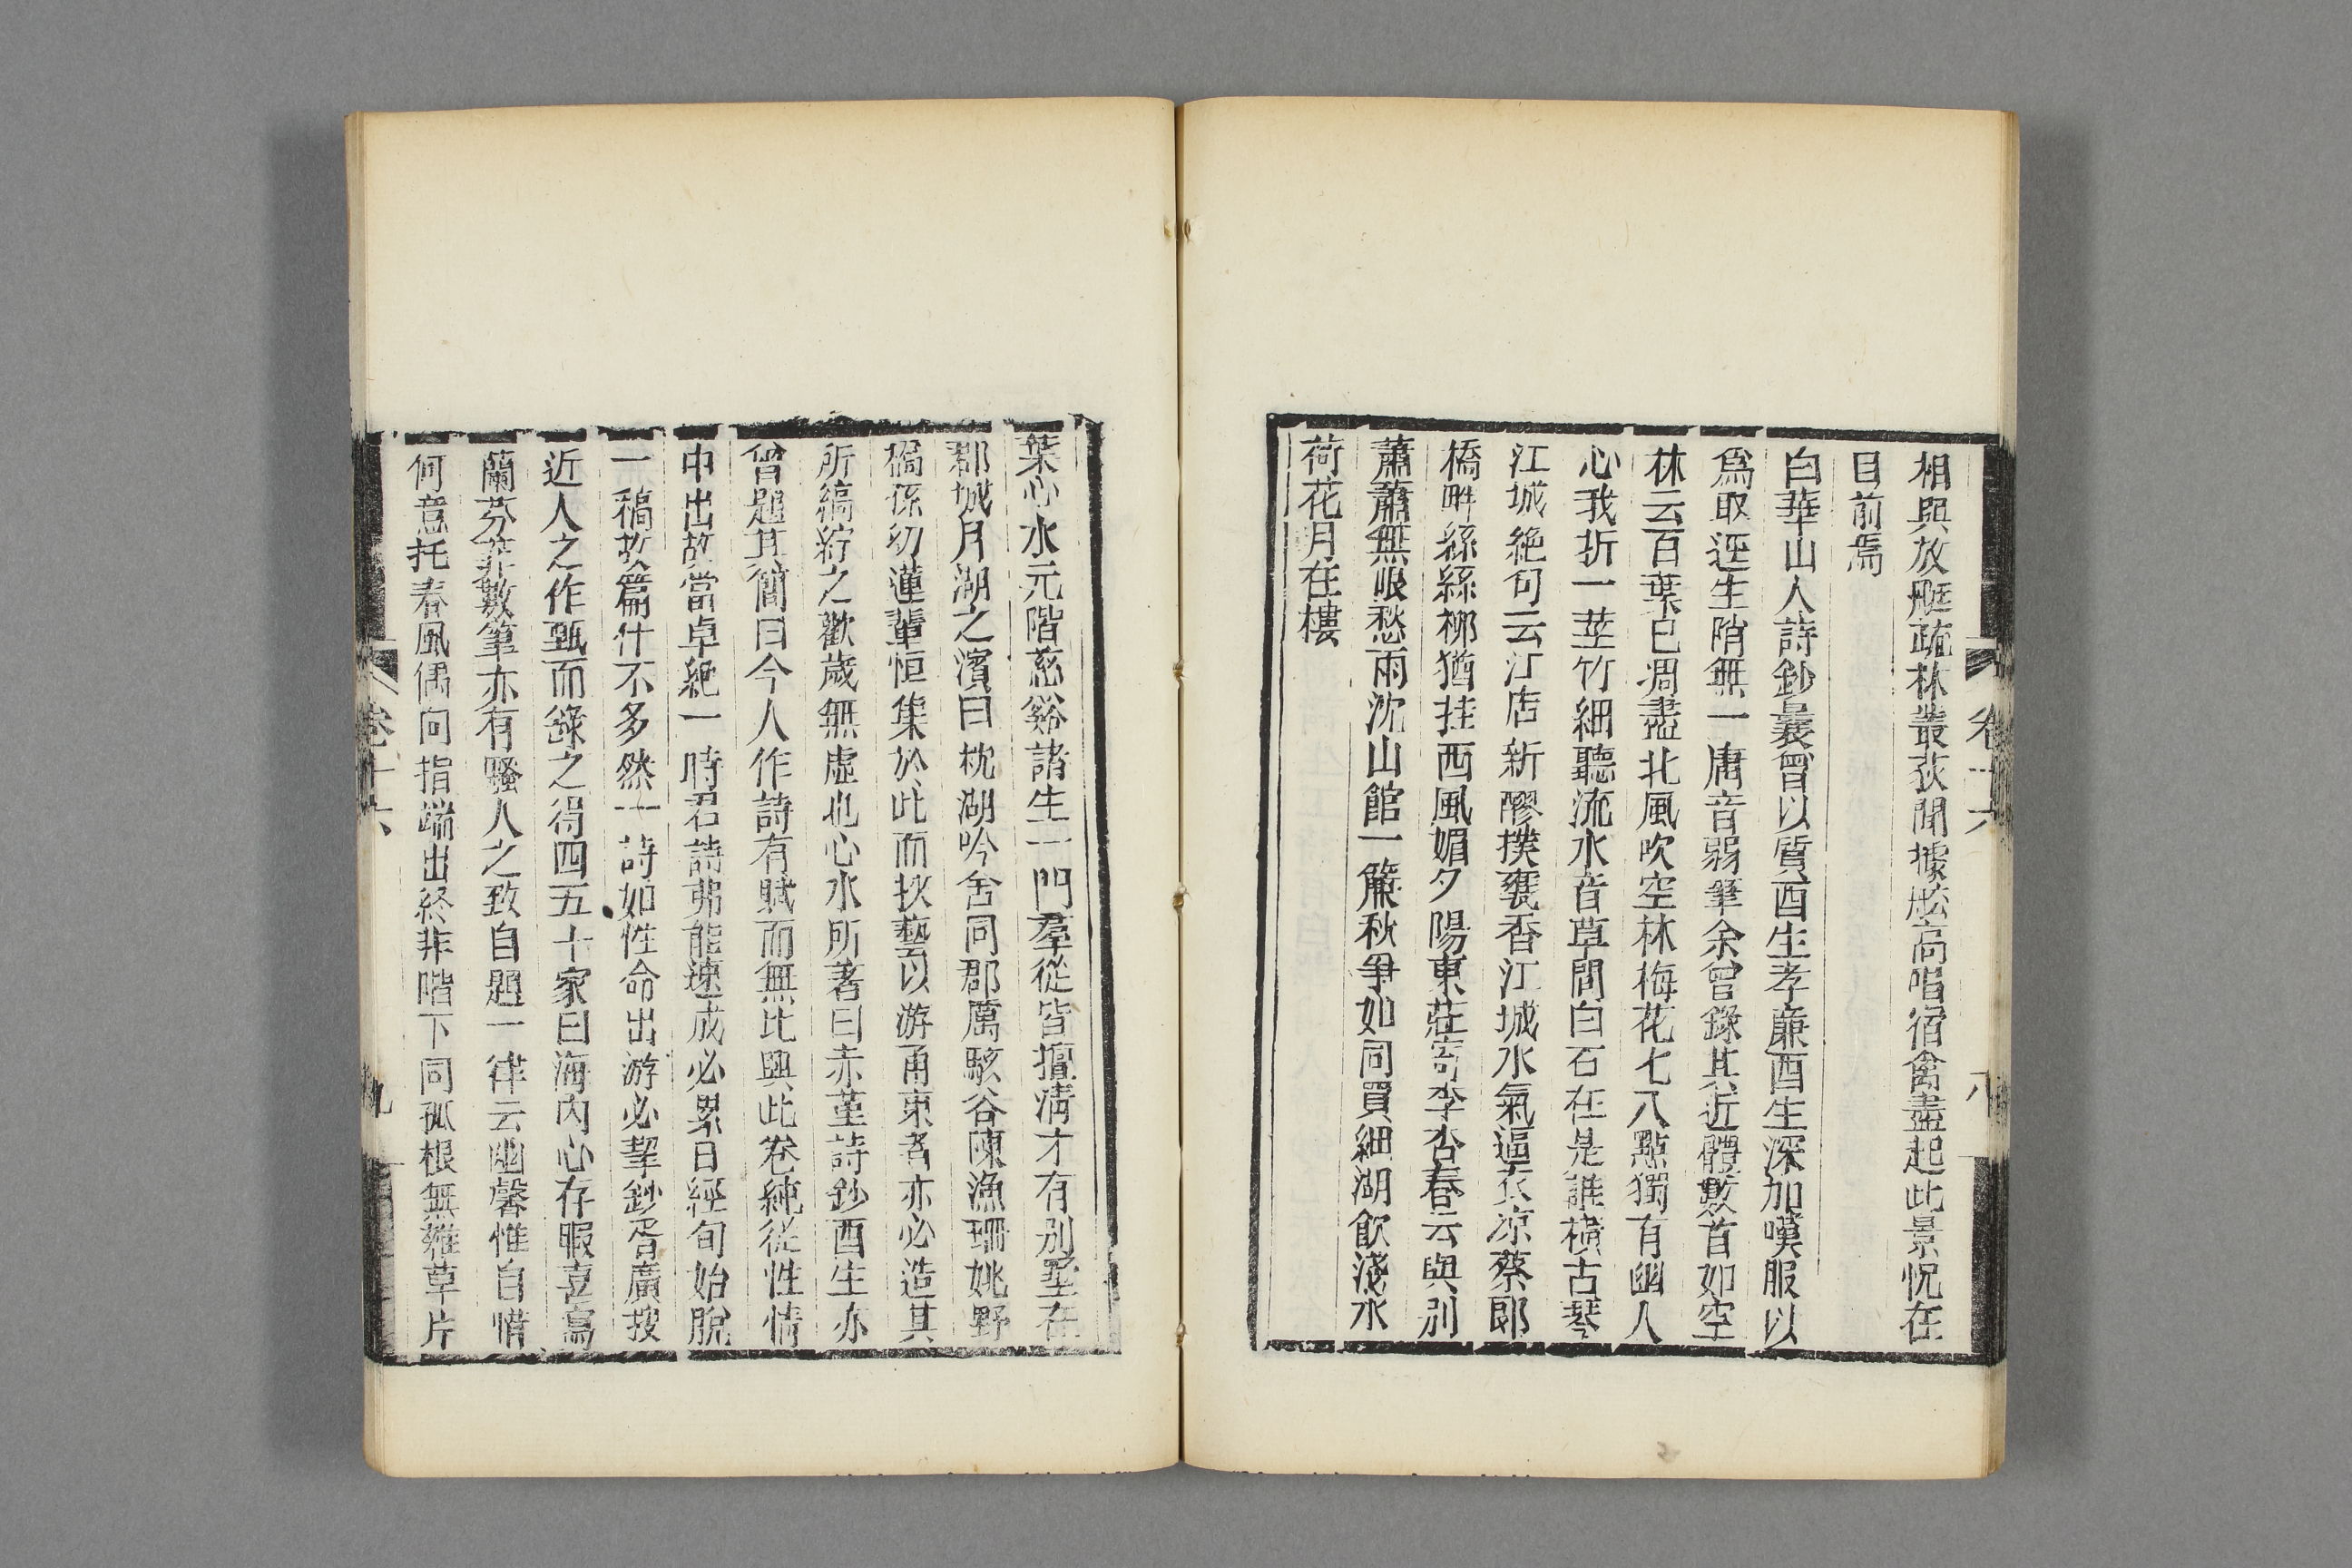 相與放艇疏林叢荻間據舷高唱宿禽盡起此景怳在
目前焉
白華山人詩鈔曩曾以質酉生孝廉酉生深加嘆服以
爲取逕生陗無一庸音弱筆余曾錄其近體數首如空
林云百葉已凋盡北風吹空林梅花七八點獨有幽人
心我折一莖竹細聽流水音草間白石在是誰橫古琴
江城絕句云江店新醪撲甕香江城水氣逼衣凉蔡郞
橋畔絲絲柳猶挂西風媚夕陽東莊寄李杏春云與別
蕭蕭無限愁雨沈山館一簾秋爭如同買細湖飲淺水
荷花月在樓
卷十六 八
葉心水元階慈谿諸生一門羣從皆擅淸才有別墅在
郡城月湖之濱曰枕湖吟舍同郡厲駭谷陳漁珊姚野
橋孫幼蓮輩恒集於此而挾藝以游甬東者亦必造其
所縞紵之歡歲無虛也心水所著曰赤堇詩鈔酉生亦
曾題其簡曰今人作詩有賦而無比興此卷純從性情
中出故當卓絕一時君詩弗能速成必累日經旬始脫
一稿故篇什不多然一詩如性命出游必挈鈔胥廣搜
近人之作甄而錄之得四五十家曰海內心存暇喜寫
蘭芬菲數筆亦有騷人之致自題一律云幽馨惟自惜
何意托春風偶向指端出終非階下同孤根無雜草片
卷十六 九